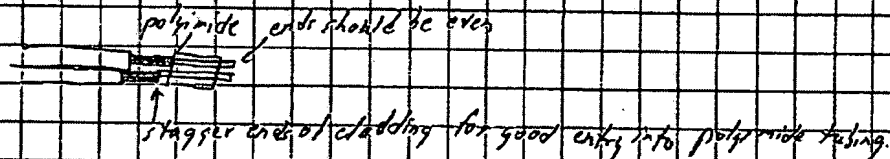 polyimide ends should be even
stagger ends of cladding for good entry into polyimide tubing.